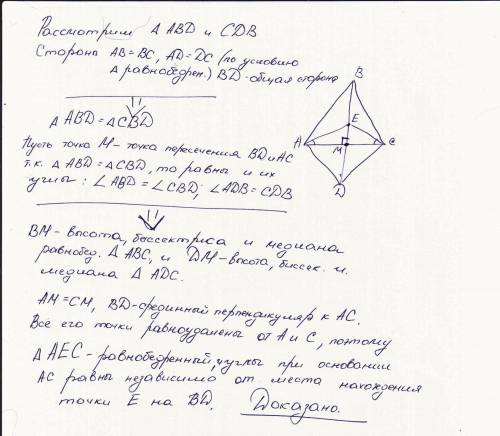 Рассмотрим Δ ABD и CDB
Стороны AB=BC, AD=DC (по условию
Δ равнобедрен.) BD-общая сторона
Δ ABD=ΔCBD
Пусть точка M-точка пересечения BD и AC
т.к. Δ ABD=ΔCBD, то равны и их
углы: ∠ABD=∠CBD; ∠ADB=CDB
BM-высота, биссектриса и медиана
равнобед. ΔABC, и DM-высота, биссек. и
медиана Δ ADC.
AM=CM, BD-срединный перпендикуляр к AC.
Все его точки равноудалены от A и C, поэтому
Δ AEC-равнобедренный, углы при основании
AC равны независимо от места нахождения
точки E на BD. Доказано.
B
E
A
C
M
D